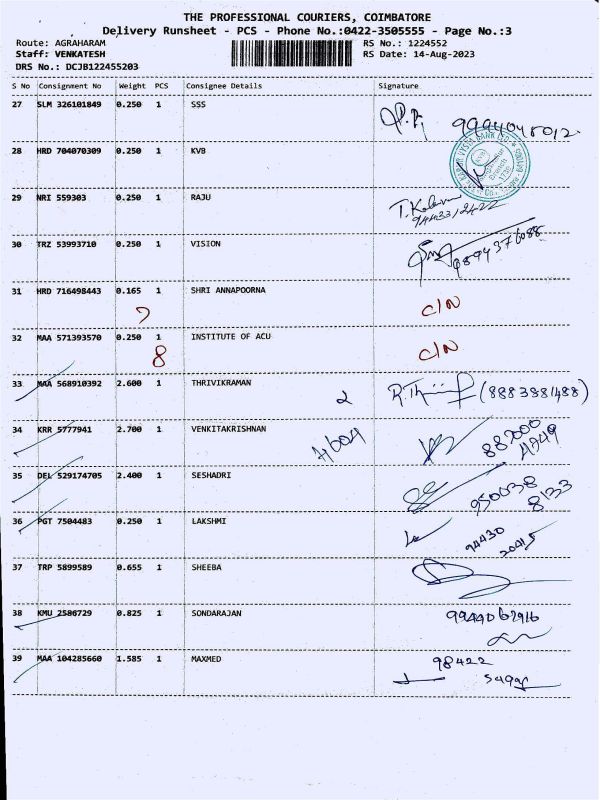 THE PROFESSIONAL COURIERS, COIMBATORE
Delivery Runsheet - PCS - Phone No.:0422-3505555 - Page No.:3
Route: AGRAHARAM RS No.: 1224552
Staff: VENKATESH RS Date: 14-Aug-2023
DRS No.: DCJB122455203
S No Consignment No Weight PCS Consignee Details Signature
27 SLM 326101849 0.250 1 SSS
28 HRD 704070309 0.250 1 KVB
29 NRI 559303 0.250 1 RAJU
9443312422
30 TRZ 53993710 0.250 1 VISION
9894376088
31 HRD 716498443 0.165 1 SHRI ANNAPOORNA C/N
7
32 MAA 571393570 0.250 1 INSTITUTE OF ACU C/N
8
33 MAA 568910392 2.600 1 THRIVIKRAMAN
2 (8883881488)
34 KRR 5777941 2.700 1 VENKITAKRISHNAN
35 DEL 529174705 2.400 1 SESHADRI
950038
8133
36 PGT 7504483 0.250 1 LAKSHMI
94430
20415
37 TRP 5899589 0.655 1 SHEEBA
38 KMU 2586729 0.825 1 SONDARAJAN 9944062916
39 MAA 104285660 1.585 1 MAXMED 98422